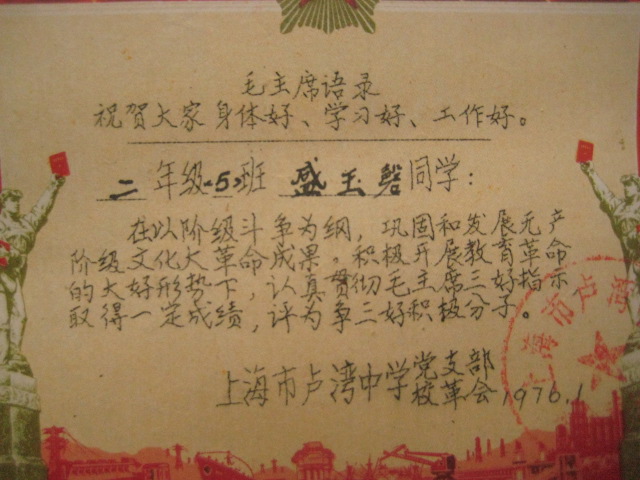 毛主席语录
祝贺大家身体好、学习好、工作好。
二年级<5>班 盛玉磐同学:
在以阶级斗争为纲,巩固和发展无产
阶级文化大革命成果,积极开展教育革命
的大好形势下,认真贯彻毛主席三好指示
取得一定成绩,评为争三好积极分子。
上海市卢湾中学党支部
校革会1976.1
上海市卢湾